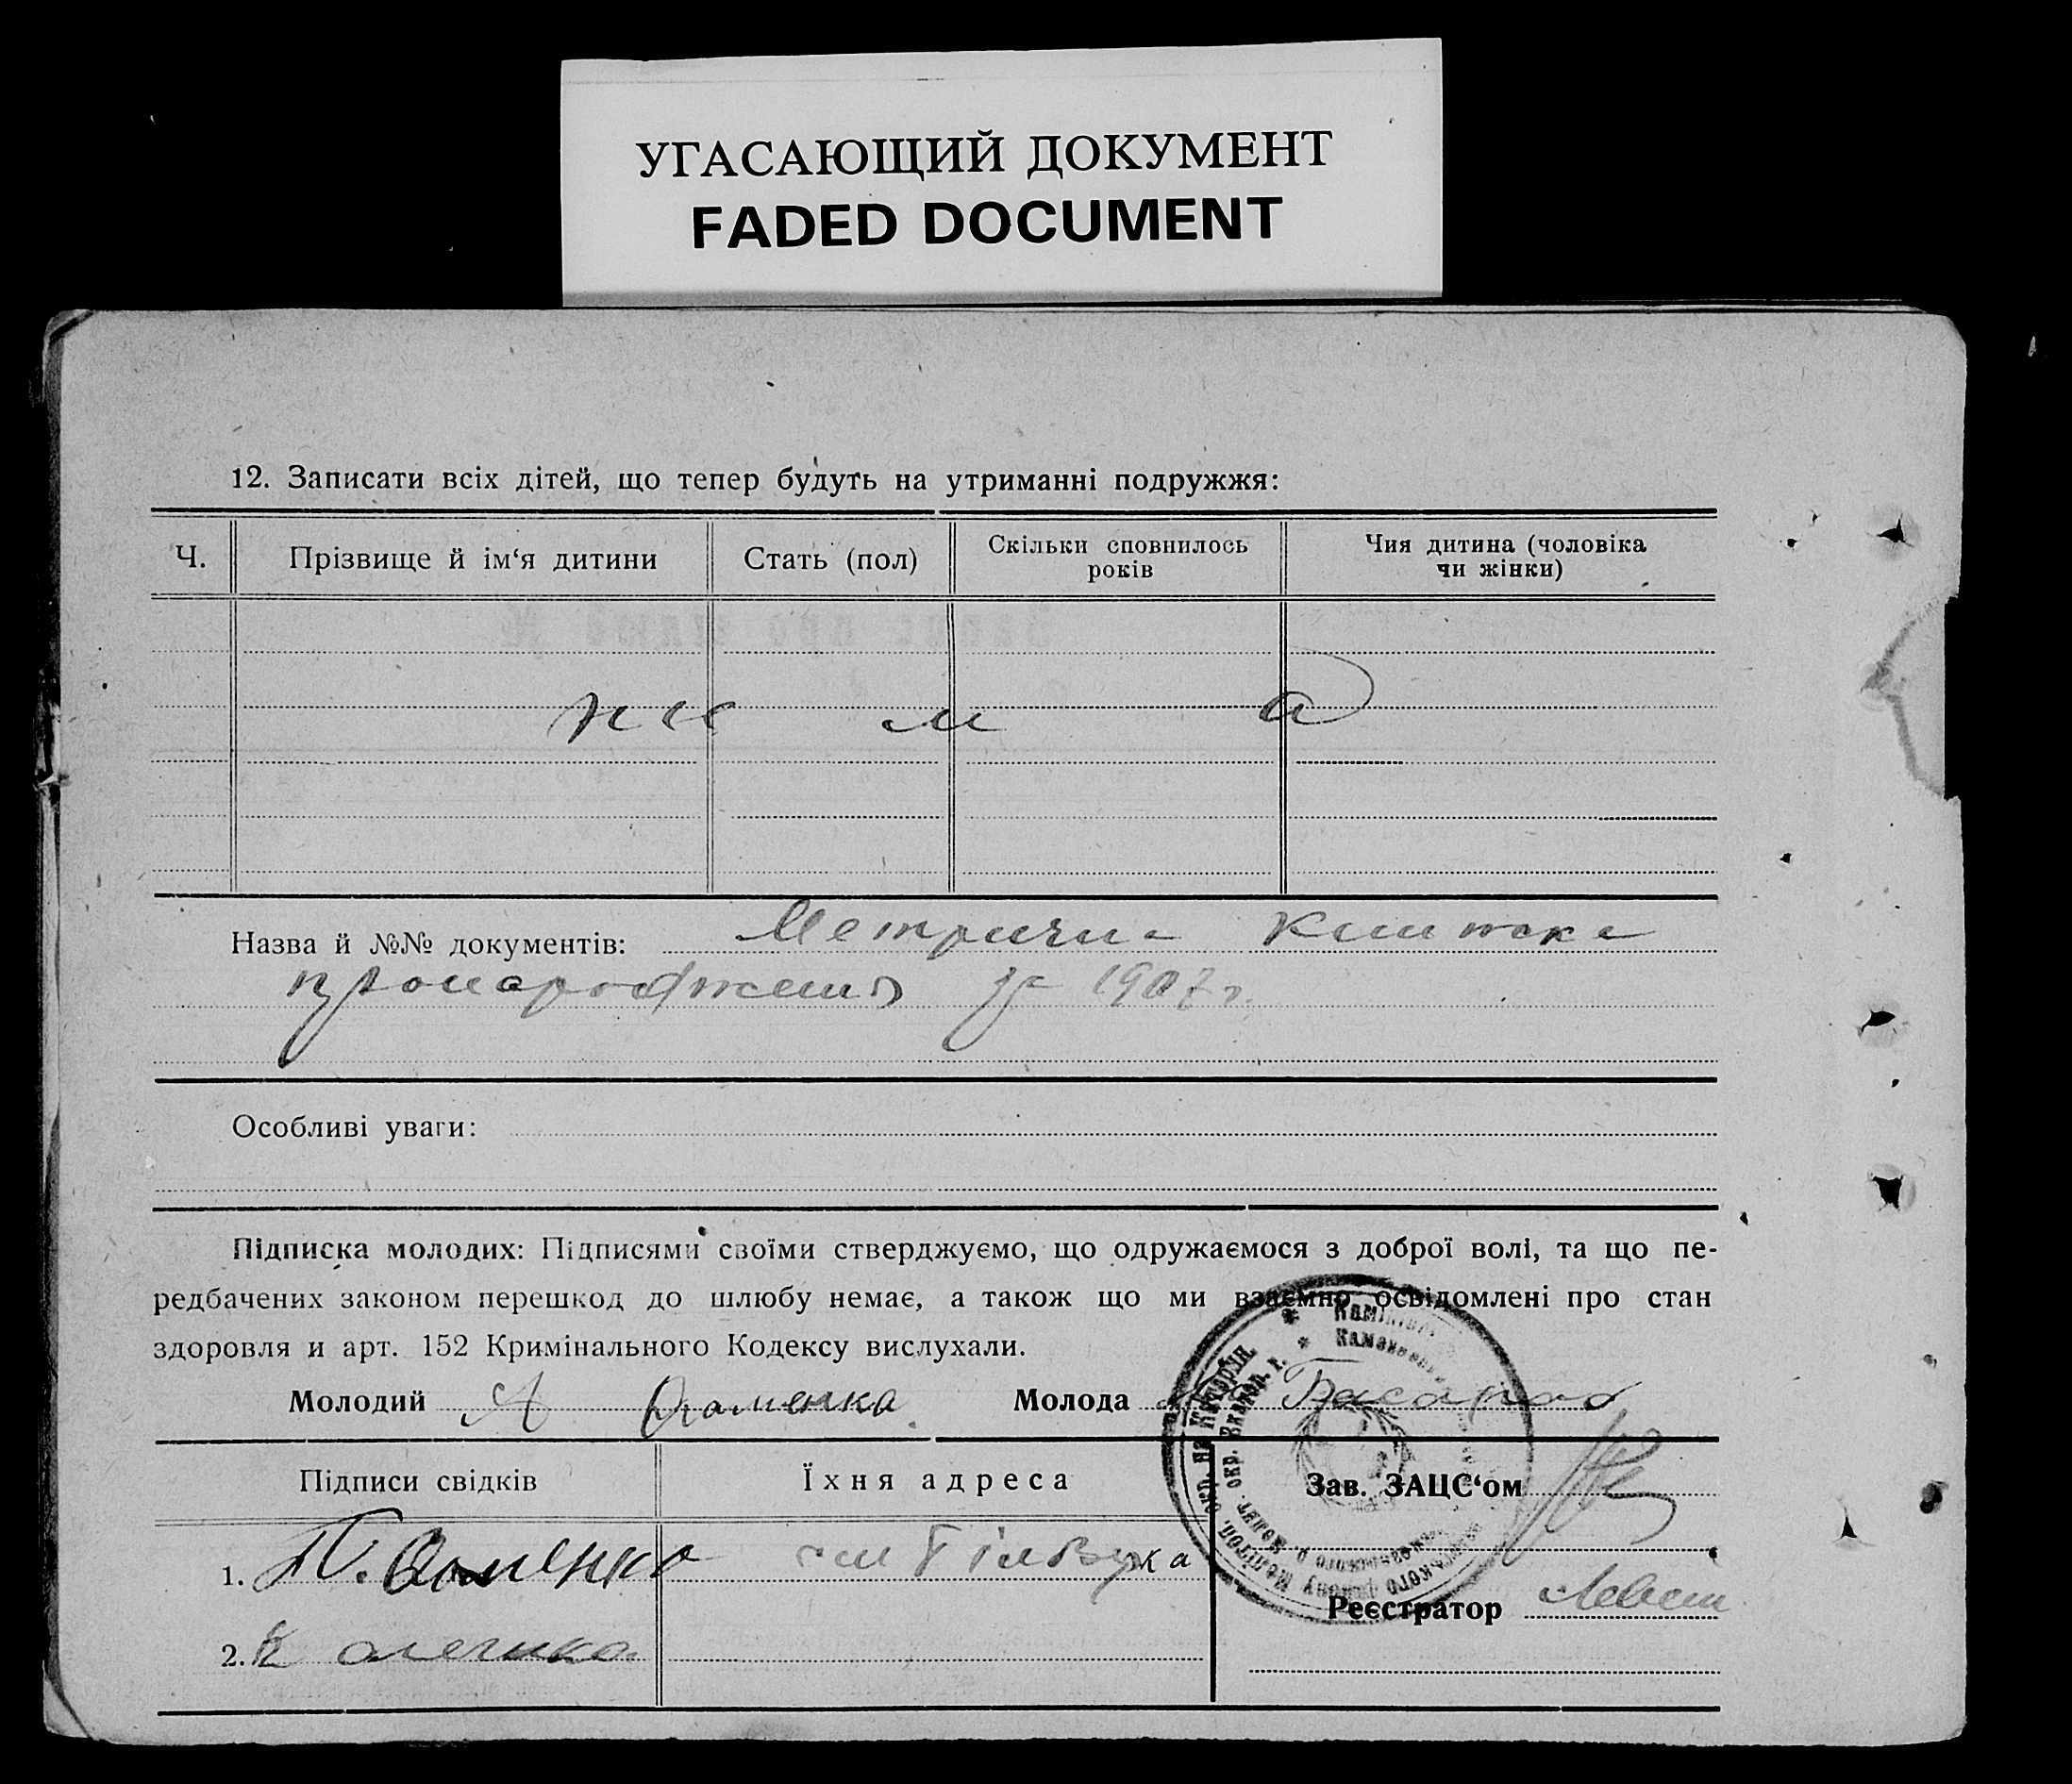 УГАСАЮЩИЙ ДОКУМЕНТ
FADED DOCUMENT
12. Записати всіх дітей, що тепер будуть на утриманні подружжя:
Ч.
Прізвище й ім‘я дитини
Стать (пол)
Скільки сповнилось
років
Чия дитина (чоловіка
чи жінки)
нема
Назва й №№ документів: Метрична книжка
про народження за 1907 г.
Особливі уваги:
Підписка молодих: Підписями своїми стверджуємо, що одружаємося з доброї волі, та що пе-
редбачених законом перешкод до шлюбу немає, а також що ми взаємно освідомлені про стан
здоровля и арт. 152 Кримінального Кодексу вислухали.
Молодий А
Молода
Підписи свідків
Їхня адреса
Зав. ЗАЦС‘ом
1. П.
Реєстратор
2.